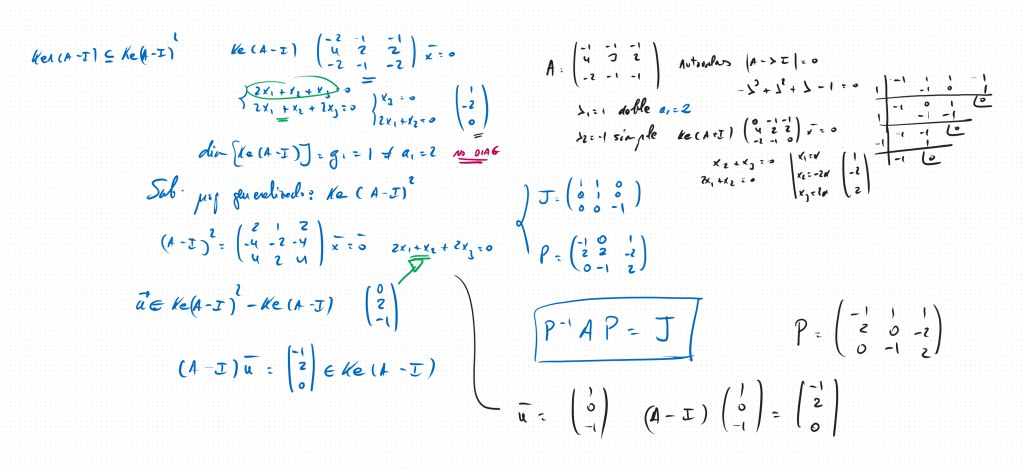 Ker(A-I) ⊆ Ke(A-I)²
Ke(A-I) (-2 -1 -1; 4 2 2; -2 -1 -2) x̄ = 0
{ 2x₁+x₂+x₃=0
2x₁+x₂+2x₃=0
{ x₃=0
2x₁+x₂=0
(1; -2; 0)
dim [Ke(A-I)] = g₁ = 1 ≠ a₁ = 2 NO DIAG
Sub. generalizado: Ke(A-I)²
(A-I)² = (2 1 2; -4 -2 -4; 4 2 4) x̄ = 0̄ 2x₁+x₂+2x₃=0
u⃗ ∈ Ke(A-I)² - Ke(A-I) (0; 2; -1)
(A-I) ū = (-1; 2; 0) ∈ Ke(A-I)
A: (-1 -1 -1; 4 3 2; -2 -1 -1) Autovalores |A-λI|=0
-λ³+λ²+λ-1=0
-1 1 1 -1
1 -1 0 1 0
1 -1 -1 0
-1 1
-1 0
λ₁=1 doble a₁=2
λ₂=-1 simple Ke(A+I) (0 -1 -1; 4 4 2; -2 -1 0) x̄=0
x₂+x₃=0
2x₁+x₂=0
x₁=α
x₂=-2α
x₃=2α
(1; -2; 2)
J = (1 1 0; 0 1 0; 0 0 -1)
P = (-1 0 1; 2 2 -2; 0 -1 2)
P⁻¹ A P = J
P = (-1 1 1; 2 0 -2; 0 -1 2)
ū = (1; 0; -1) (A-I) (1; 0; -1) = (-1; 2; 0)